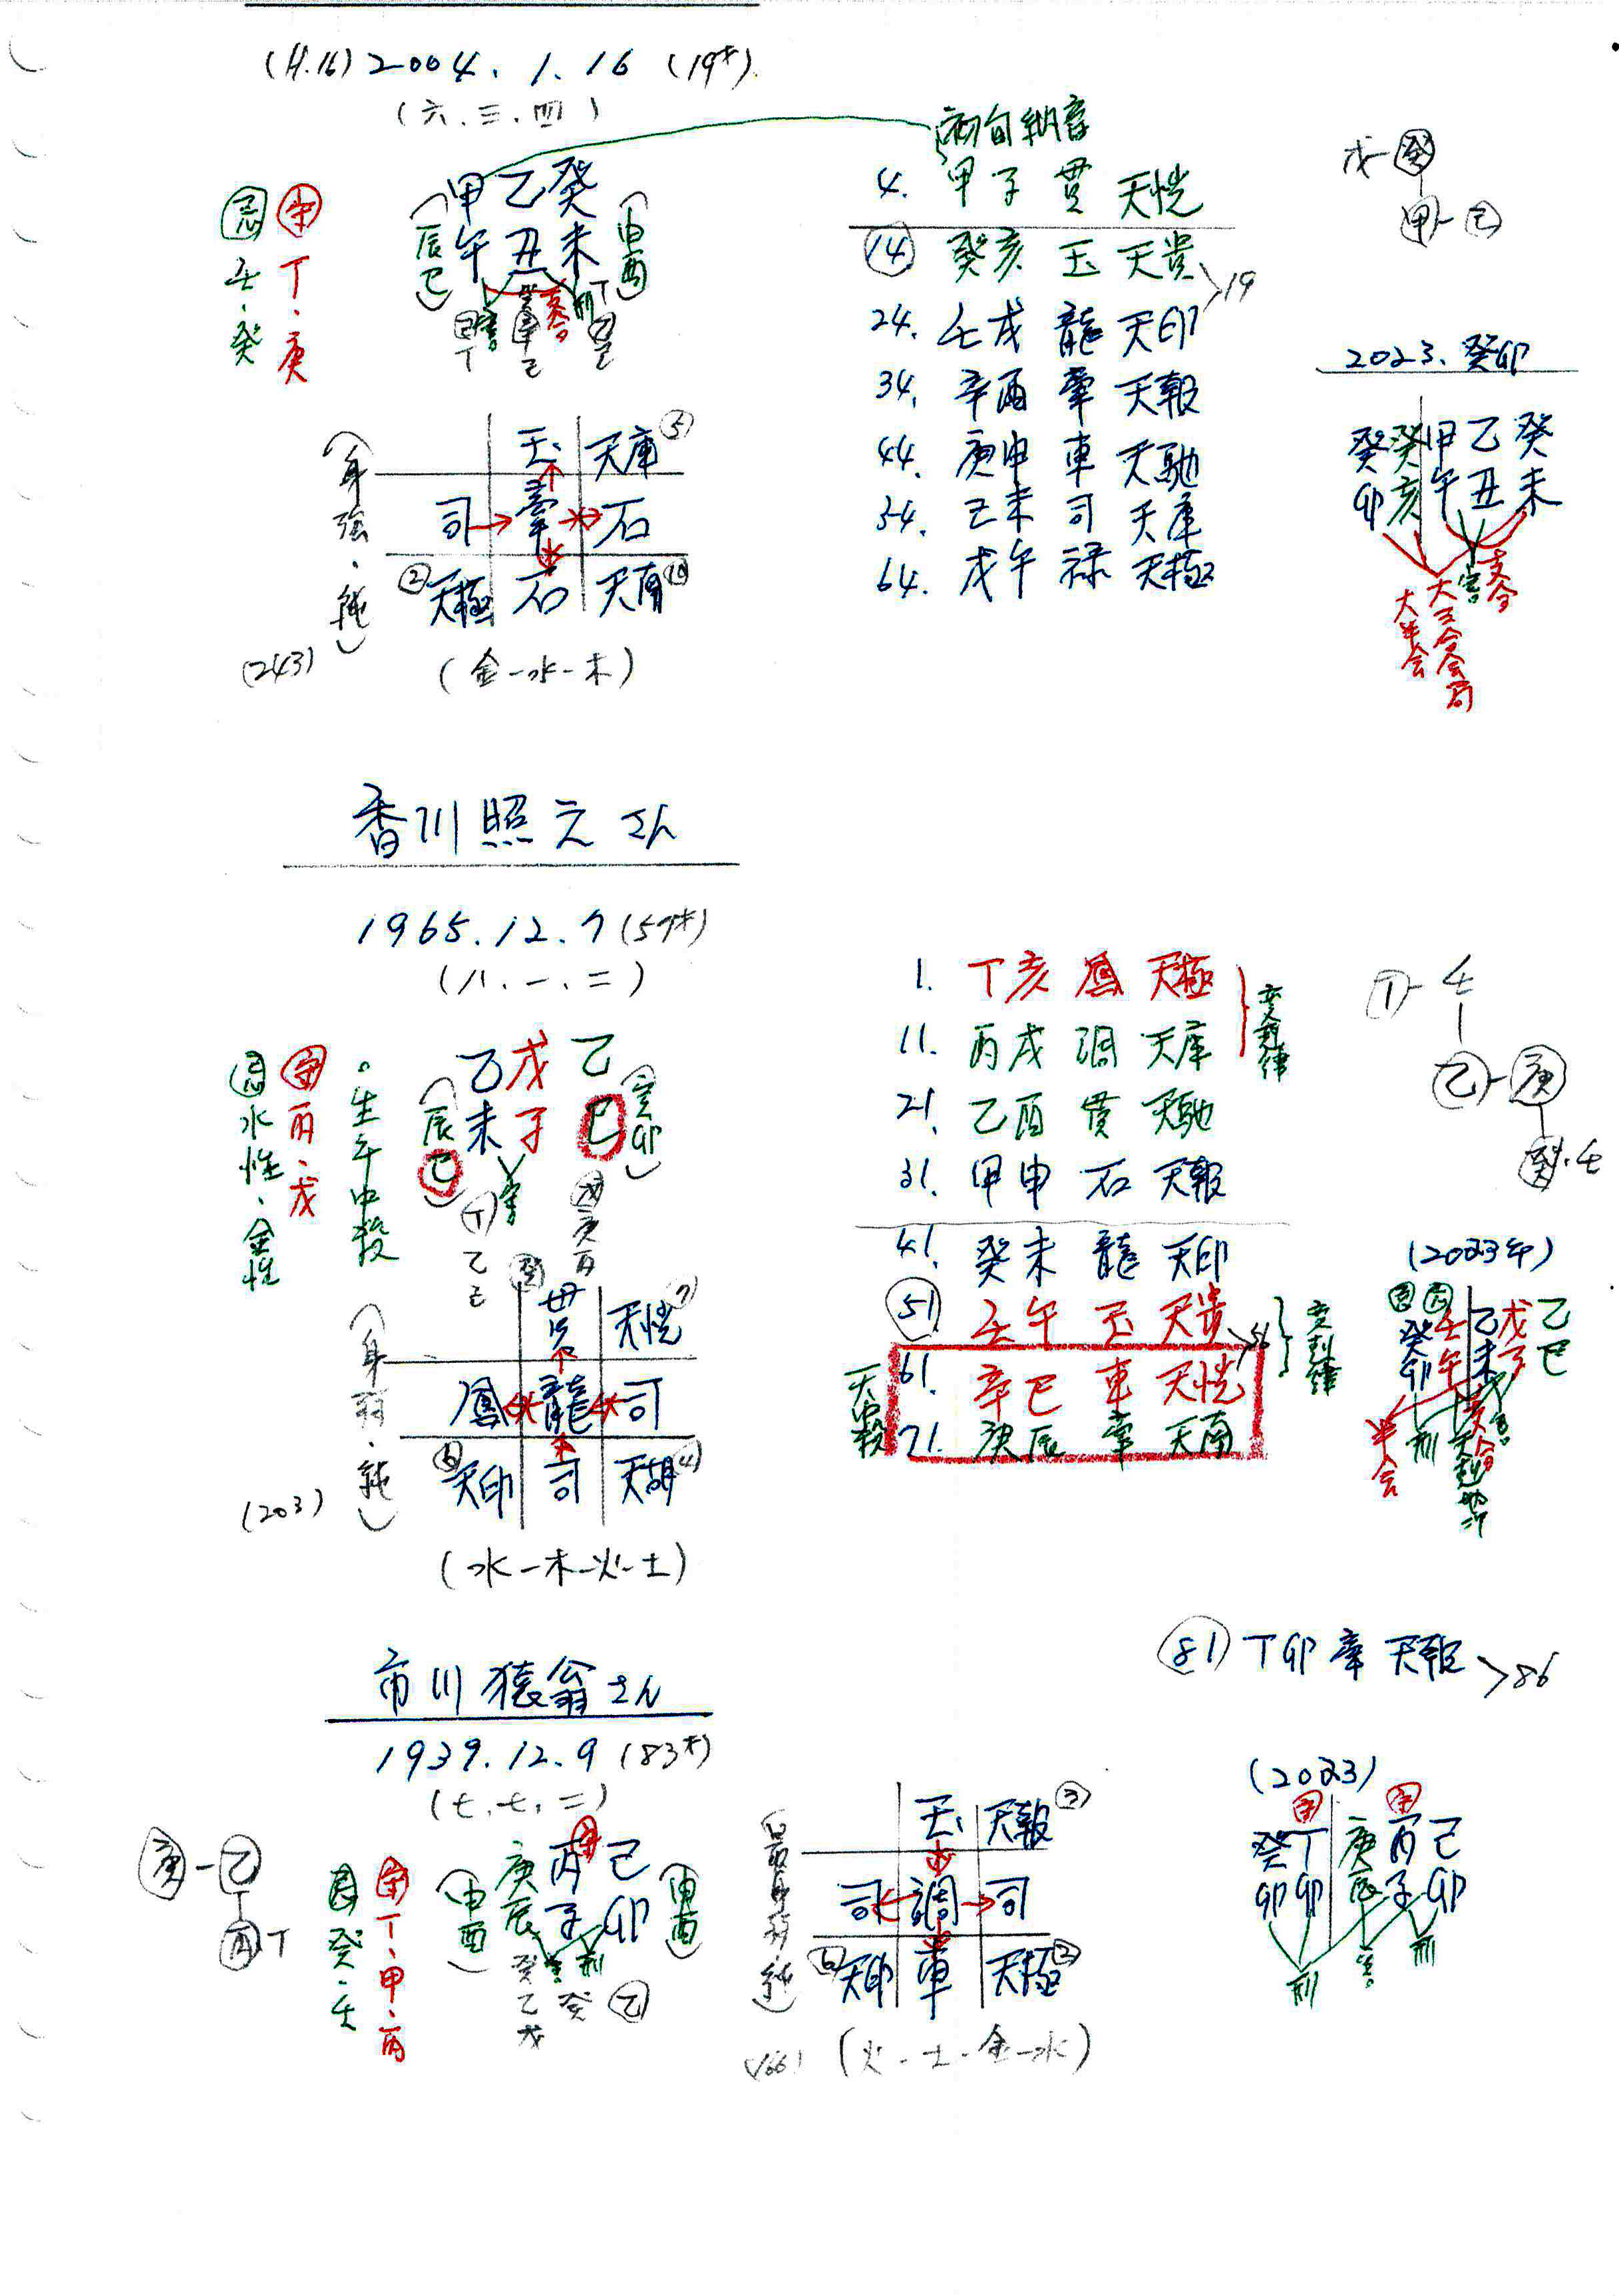 (H.16) 2004. 1. 16 (19才)
(六.三.四)
守 丁.庚
忌 壬.癸
甲乙癸
午丑未
(辰巳)
(申酉)
害
支合
刑
玉 天庫 ⑤
司 牽 石
② 天極 石 天南 ⑩
(身強.純)
(243)
(金-水-木)
初旬納音
4. 甲子 貫 天恍
⑭ 癸亥 玉 天貴
>19
24. 壬戌 龍 天印
34. 辛酉 牽 天報
44. 庚申 車 天馳
54. 己未 司 天庫
64. 戊午 禄 天極
甲-己
2023. 癸卯
癸癸甲乙癸
卯亥午丑未
大半会
大三合会局
害
支合
香川照之さん
1965.12.7 (57才)
(八.一.二)
守 丙.戊
忌 水性.金性
。生年中殺
乙戊乙
未子巳
(辰巳)
(寅卯)
害
丁乙己
戊庚丙
癸
貫 天恍 ⑦
鳳 龍 司
⑥ 天印 司 天胡 ④
(身弱.純)
(203)
(水-木-火-土)
1. 丁亥 鳳 天極
11. 丙戌 調 天庫
変剋律
21. 乙酉 貫 天馳
31. 甲申 石 天報
41. 癸未 龍 天印
51 壬午 玉 天貴
>56
61. 辛巳 車 天恍
71. 庚辰 牽 天南
変剋律
天中殺
丁-壬
乙-庚
(2023年)
忌忌
癸壬乙戊乙
卯午未子巳
半会
刑
支合
害
市川猿翁さん
1939.12.9 (83才)
(七.七.二)
庚-乙
丙丁
守 丁.甲.丙
忌 癸.壬
庚丙己
辰子卯
(申酉)
(申酉)
害
刑
癸乙戊
癸
乙
玉 天報 ③
司 調 司
⑥ 天印 車 天極 ②
(最身弱.純)
(166)
(火-土-金-水)
81 丁卯 牽 天報
>86
(2023)
守 守
癸丁庚丙己
卯卯辰子卯
刑
害
刑